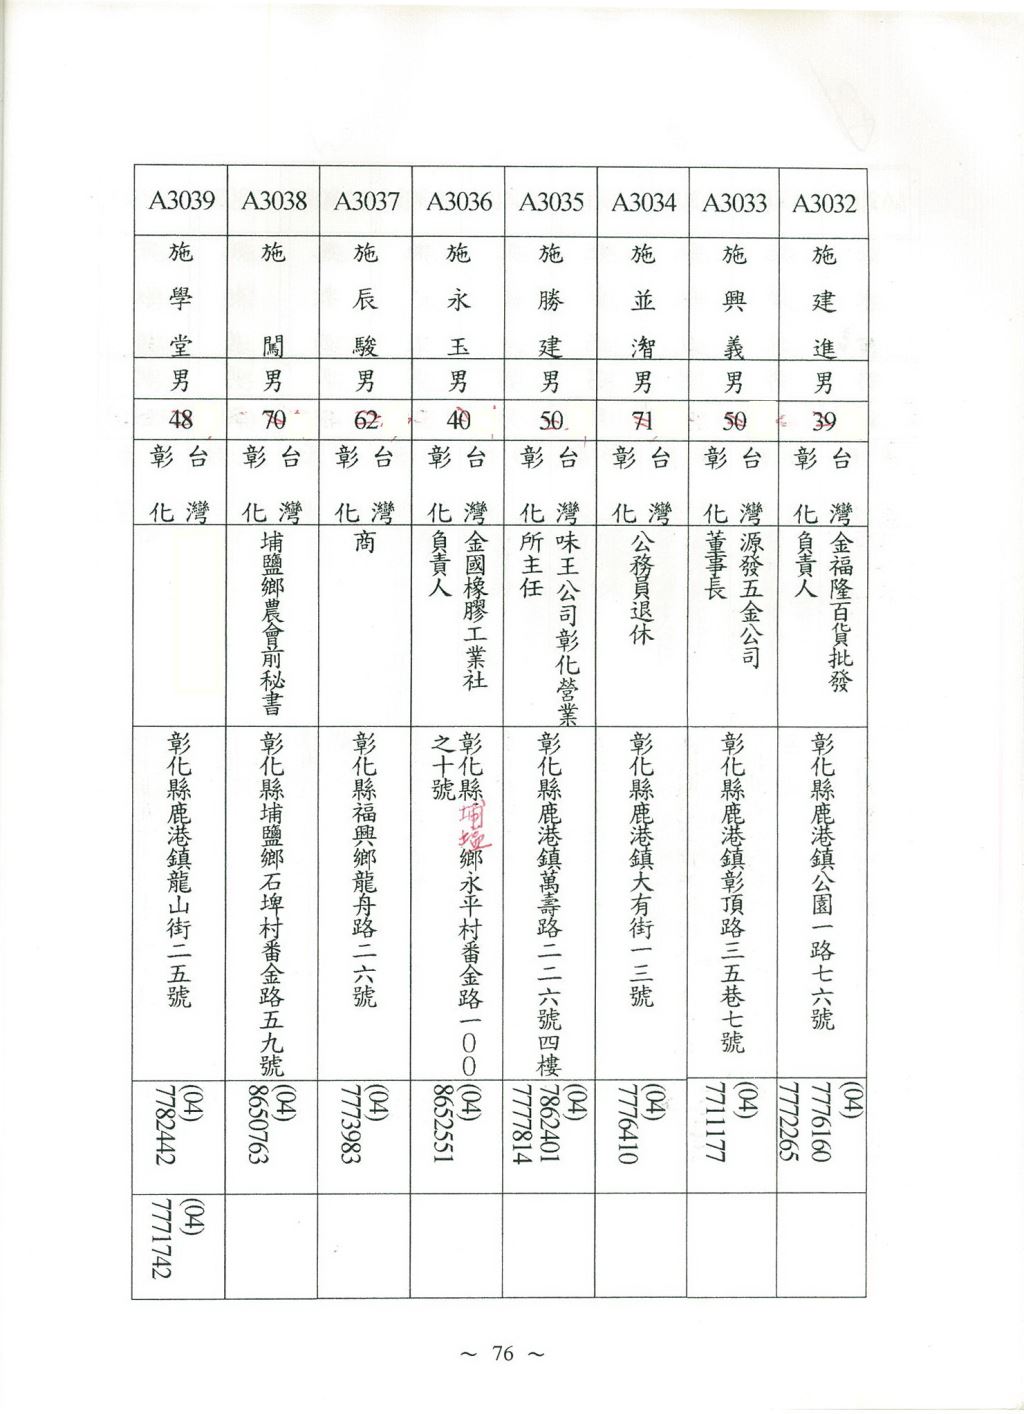 A3032
施建進
男
39
台灣
彰化
金福隆百貨批發
負責人
彰化縣鹿港鎮公園一路七六號
(04)
7776160
7772265
A3033
施興義
男
50
台灣
彰化
源發五金公司
董事長
彰化縣鹿港鎮彰頂路三五巷七號
(04)
7711177
A3034
施並潪
男
71
台灣
彰化
公務員退休
彰化縣鹿港鎮大有街一三號
(04)
7776410
A3035
施勝建
男
50
台灣
彰化
味王公司彰化營業
所主任
彰化縣鹿港鎮萬壽路二二六號四樓
(04)
7862401
7777814
A3036
施永玉
男
40
台灣
彰化
金國橡膠工業社
負責人
彰化縣埔塩鄉永平村番金路一00
之十號
(04)
8652551
A3037
施辰駿
男
62
台灣
彰化
商
彰化縣福興鄉龍舟路二六號
(04)
7773983
A3038
施闖
男
70
台灣
彰化
埔鹽鄉農會前秘書
彰化縣埔鹽鄉石埤村番金路五九號
(04)
8650763
A3039
施學堂
男
48
台灣
彰化
彰化縣鹿港鎮龍山街二五號
(04)
7782442
(04)
7771742
~ 76 ~